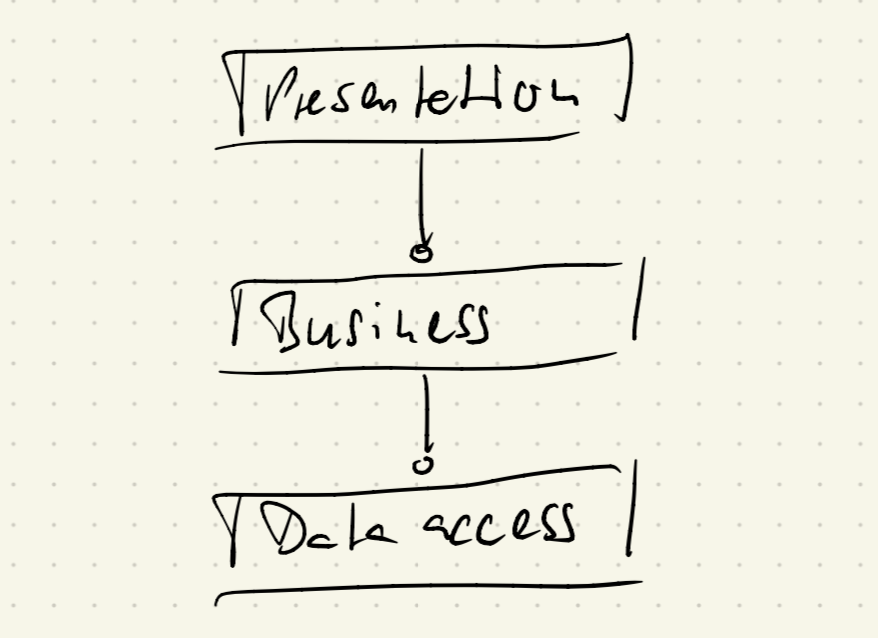 Presentation
Business
Data access